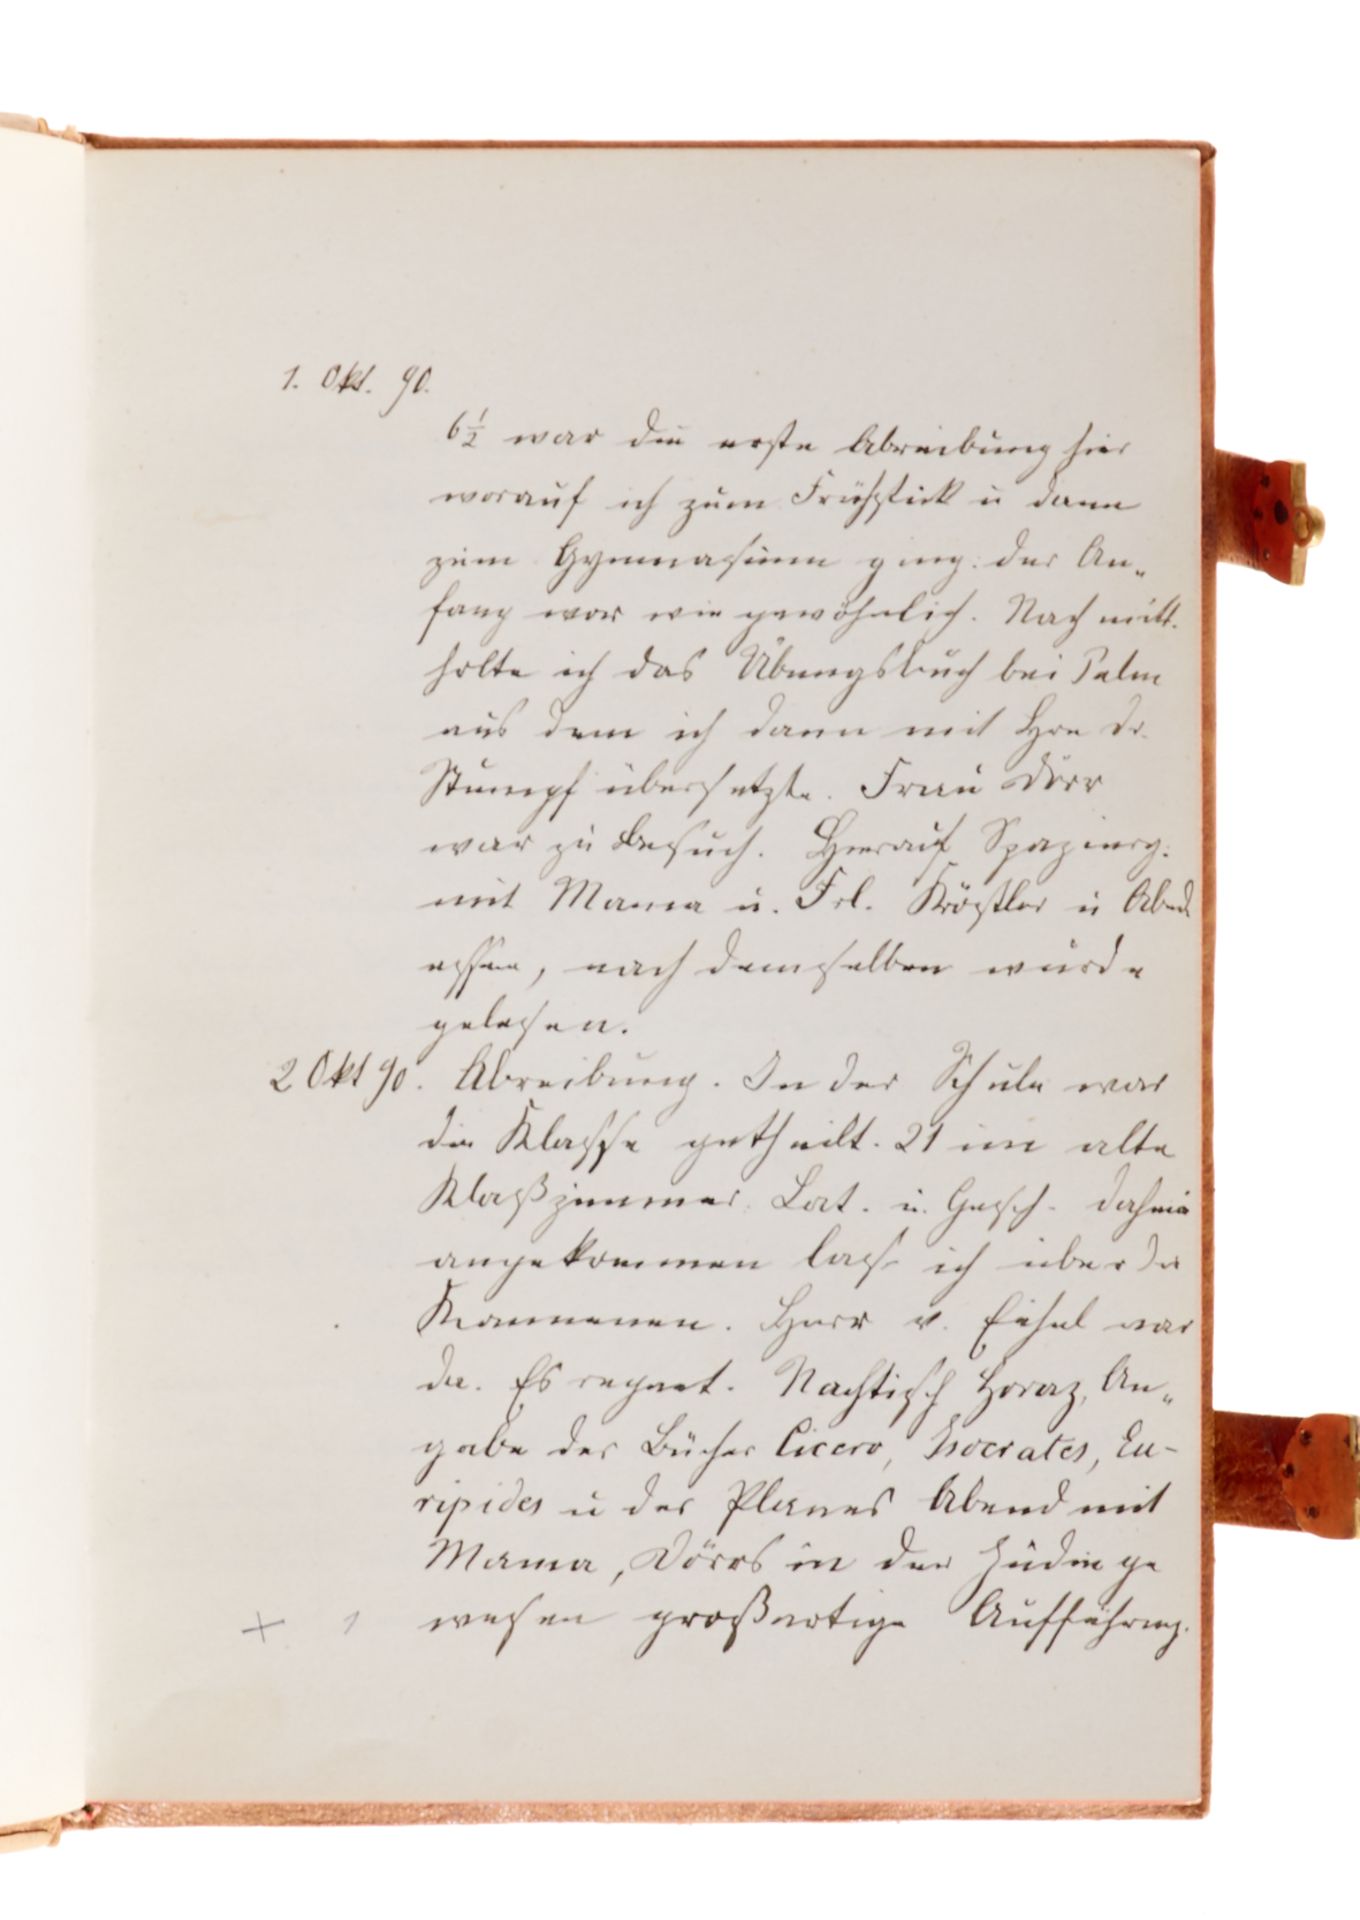 1. Okt. 90.
6½ war die erste Abreibung hier
worauf ich zum Frühstick u dann
zum Gymnasium ging: der An„
fang war wie gewöhnlich. Nachmitt.
holte ich das Übungsbuch bei Palm
aus dem ich dann mit Hrn Dr.
Stumpf übersetzte. Frau Dörr
war zu Besuch. Hierauf Spazierg.
mit Mama u. Frl. Köstler u Abend
essen, nach demselben wurde
gelesen.
2 Okt 90. Abreibung. In der Schule war
die Klasse getheilt. 21 im alte
Klaßzimmer. Lat. u. Gesch. daheim
angekommen las ich über die
Herr v. Eichel war
da. Es regnet. Nachtisch Horaz, An„
gabe der Bücher Cicero, Isocrates, Eu-
ripides u des Planes Abend mit
Mama, Dörrs in der Jüdin ge
+ 1 wesen großartige Aufführung.